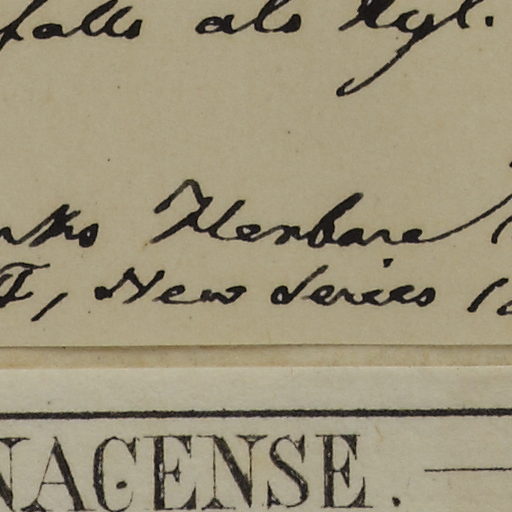 falls als Xyl.
rks Herbare
T, New Series 12
NACENSE.